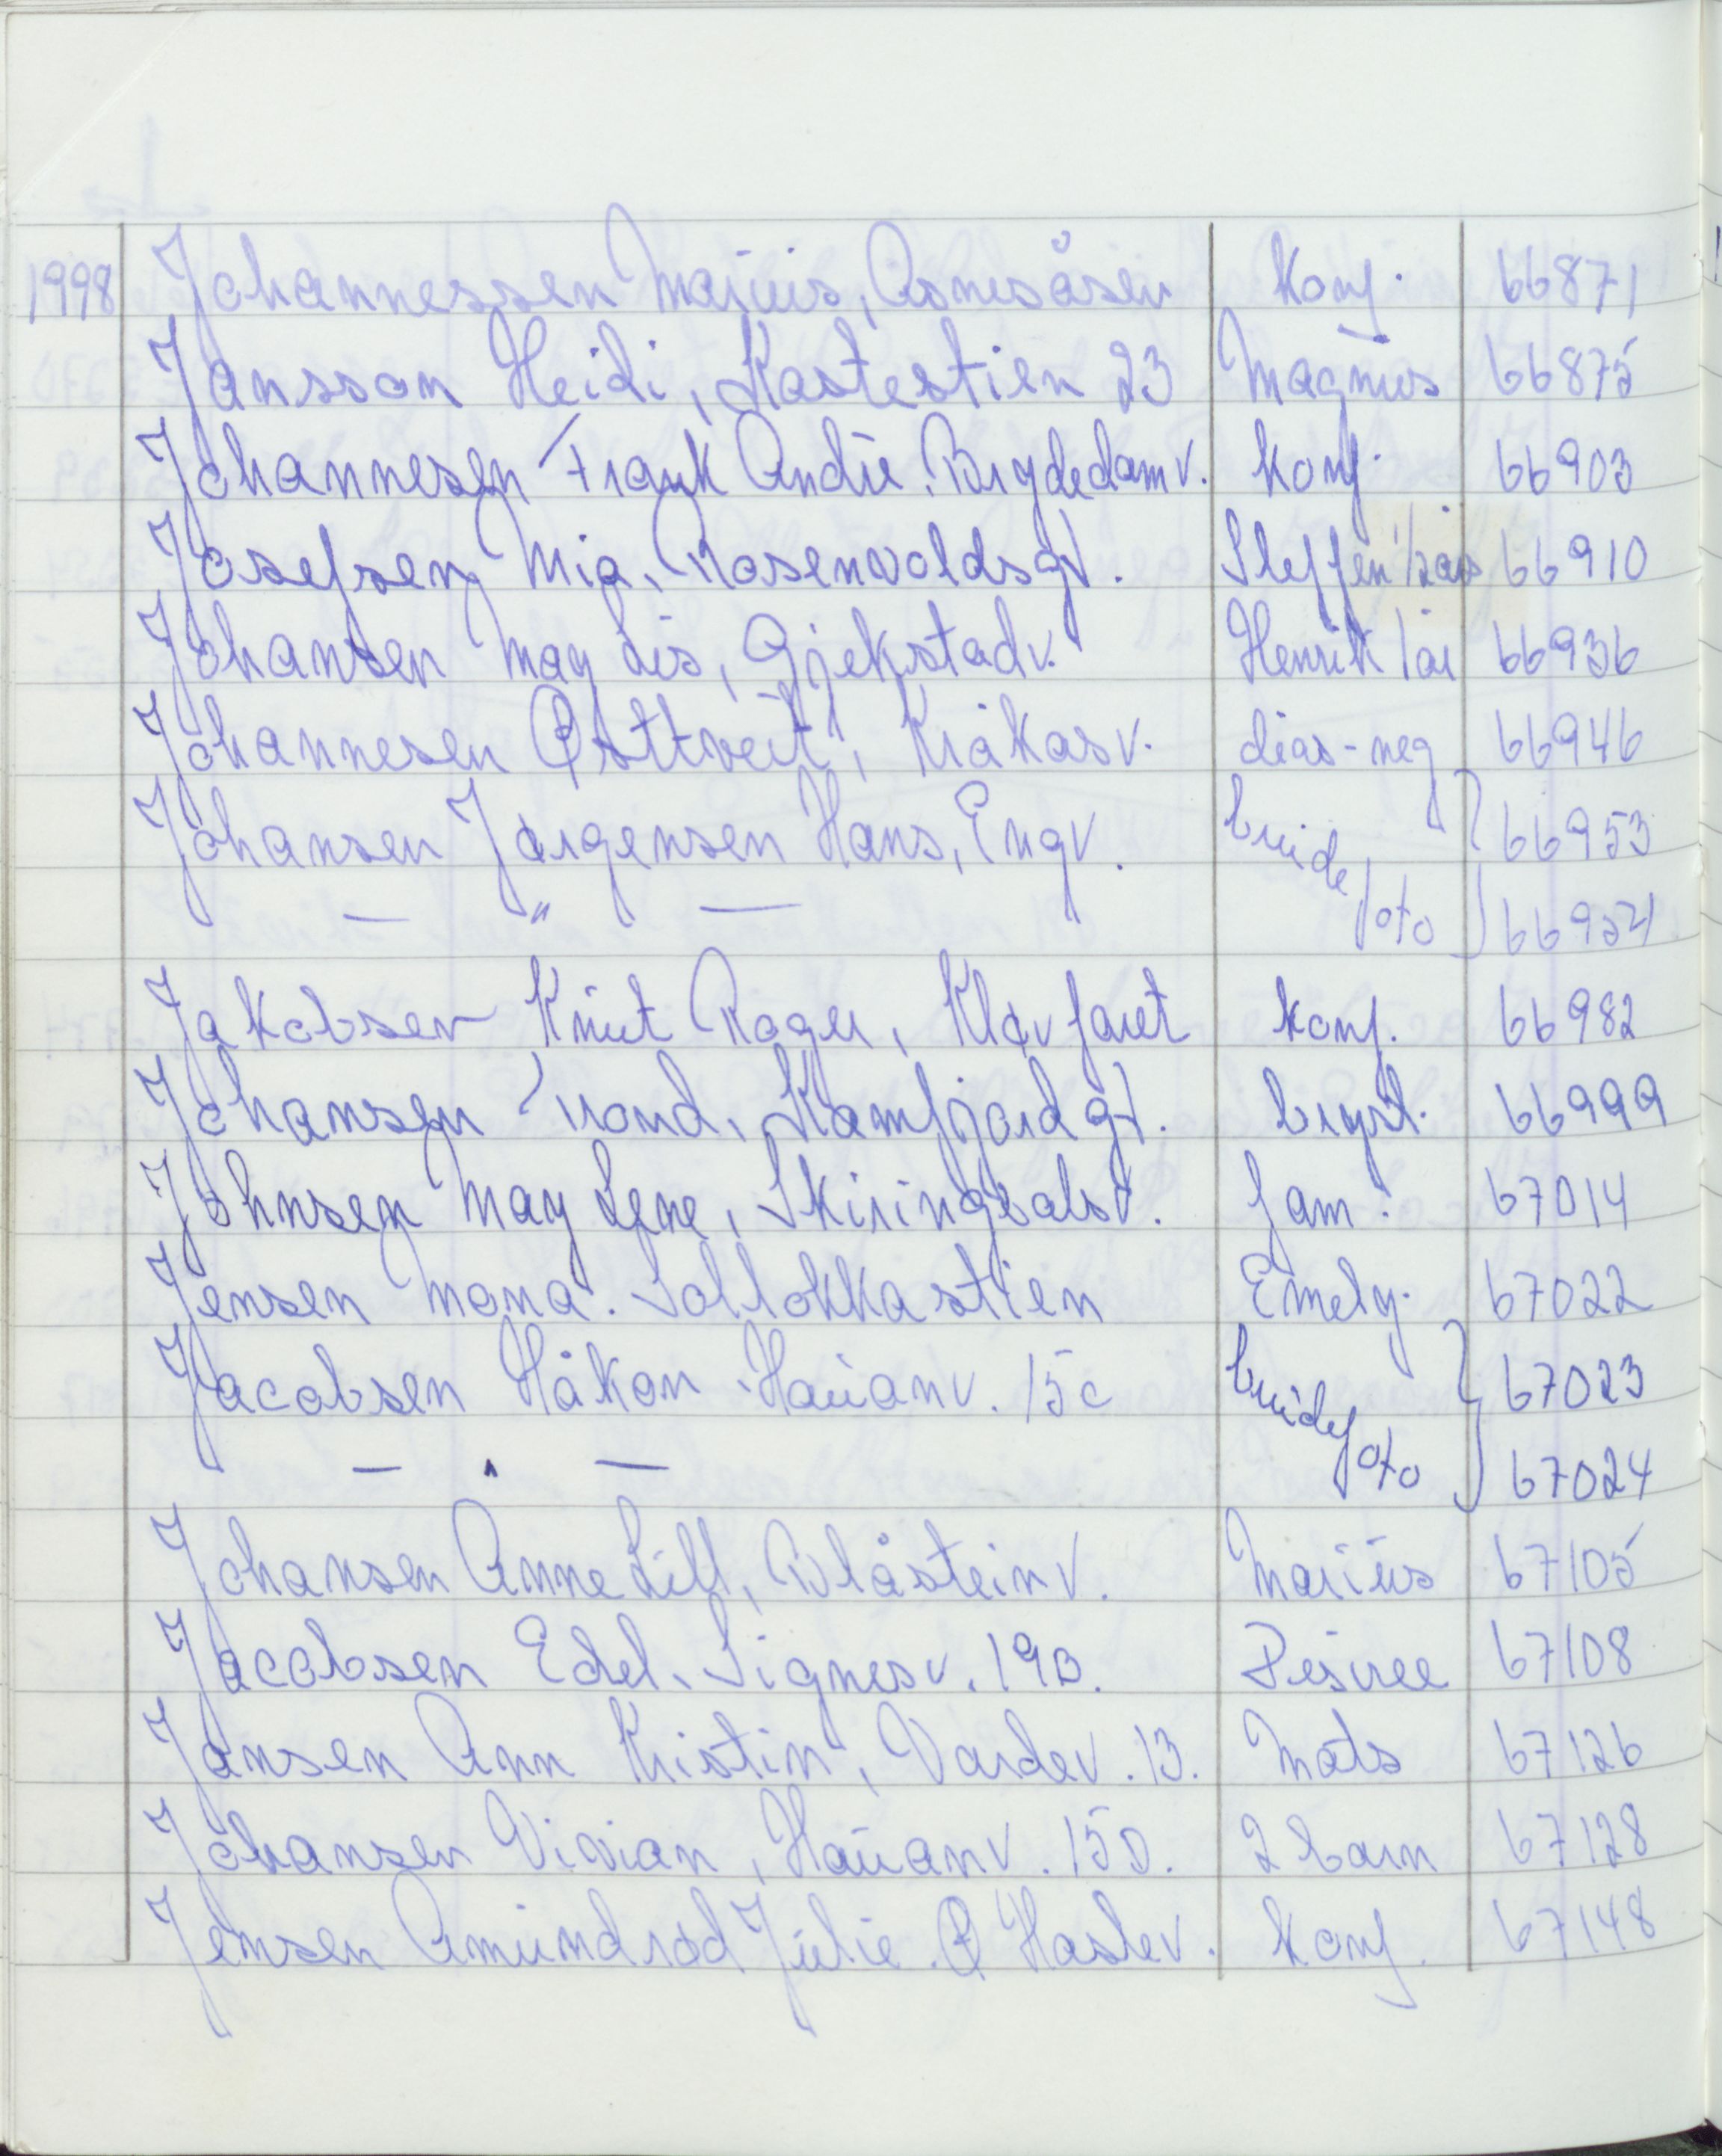 1998 Johannessen Marius, Asnesåsen konf. 66871
Jansson Heidi, Kastestien 23 Magnus 66875
Johannesen Frank André. Brydedamv. konf. 66903
Josefsen Mia, Rosenvoldsgt. Steffen 1/2 års 66910
Johansen May Lis, Gjekstadv. Henrik 1 år 66936
Johannesen Østtveit, Kråkåsv. dias-neg 66946
Johansen Jørgensen Hans, Engv. brude 66953
— " — foto 66954
Jakobsen Knut Roger, Kløvfaret konf. 66982
Johansen Trond, Kamfjordgt. bryst. 66999
Johnsen May Lene, Skiringsalsv. fam. 67014
Jensen Mona. Solløkkastien Emely. 67022
Jacobsen Håkon Hauanv. 15c brude 67023
— " — foto 67024
Johansen Anne Lill, Blåsteinv. Marius 67105
Jacobsen Edel, Signesv. 19B. Desiree 67108
Jansen Ann Kristin, Vardev. 13. Mats 67126
Johansen Vivian, Hauanv. 15D. 2 barn 67128
Jensen Amundrød Julie. Ø Haslev. konf. 67148